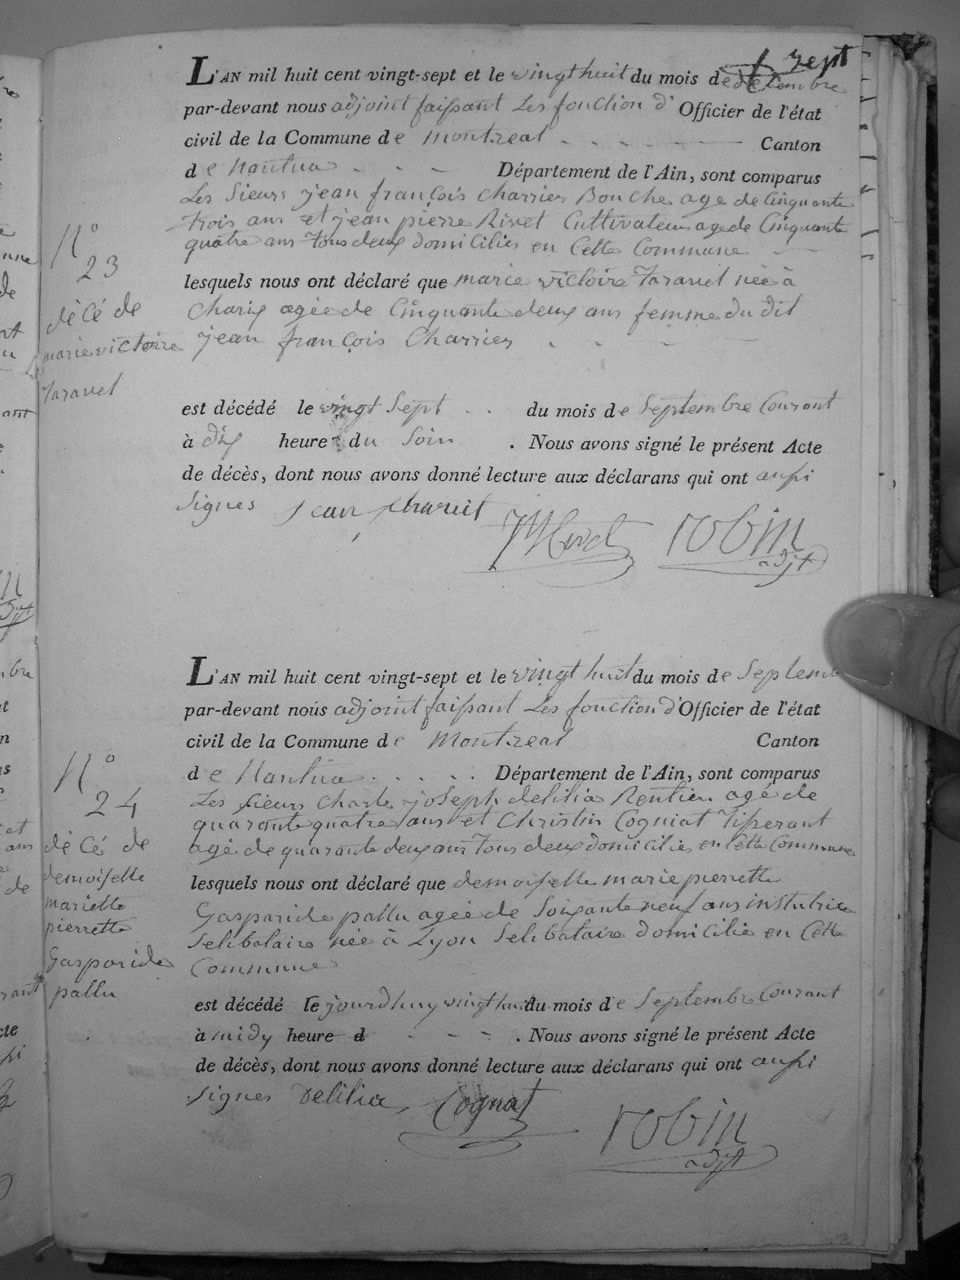 7 Sept
L'AN mil huit cent vingt-sept et le vingt huit du mois de
par-devant nous adjoint faissant Les fonction d' Officier de l'état
civil de la Commune de Montreal Canton
de Nantua Département de l'Ain, sont comparus
Les Sieurs jean françois Charrier Boucher agé de Cinquante
trois ans et jean pierre Rivet Cultivateur agé de Cinquante
quatre ans tous deux domiciliés en Cette Commune
N° 23
lesquels nous ont déclaré que marie victoire Taravel née à
Charix agée de Cinquante deux ans femme du dit
jean françois Charrier
décé de
marie victoire
Taravel
est décédé le vingt Sept du mois de Septembre Courant
à dix heure du Soir . Nous avons signé le présent Acte
de décès, dont nous avons donné lecture aux déclarans qui ont aussi
Signes Jean
Robin
adjt
L'AN mil huit cent vingt-sept et le vingt huit du mois de Septemb
par-devant nous adjoint faissant Les fonction d'Officier de l'état
civil de la Commune de Montreal Canton
de Nantua Département de l'Ain, sont comparus
Les Sieurs Charle joseph delilia Rentier agé de
quaronte quatre ans et Christin Cogniat Tisserant
agé de quaronte deux ans tous deux domiciliés en Cette Commune
N° 24
lesquels nous ont déclaré que demoiselle marie pierrette
Gasparide pallu agée de Soixante neuf ans institutrice
Selibataire née à Lyon Selibataire domicilié en Cette
Commune
décé de
demoiselle
mariette
pierrette
Gasparide
pallu
est décédé le jourdhuy vingt huit du mois de Septembre Courant
à midy heure d . Nous avons signé le présent Acte
de décès, dont nous avons donné lecture aux déclarans qui ont aussi
Signes Delilia Cognat
Robin
adjt